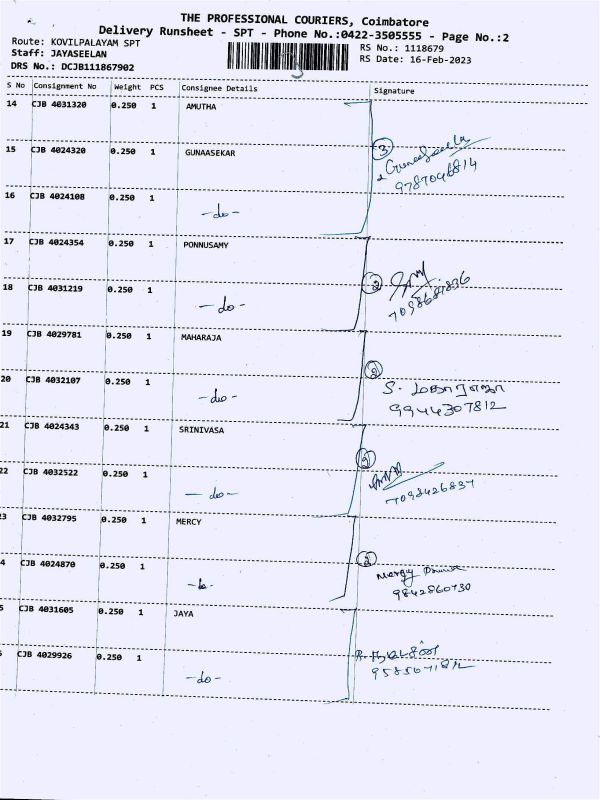 THE PROFESSIONAL COURIERS, Coimbatore
Delivery Runsheet - SPT - Phone No.:0422-3505555 - Page No.:2
Route: KOVILPALAYAM SPT
Staff: JAYASEELAN
DRS No.: DCJB111867902
RS No.: 1118679
RS Date: 16-Feb-2023
S No Consignment No Weight PCS Consignee Details Signature
14 CJB 4031320 0.250 1 AMUTHA
15 CJB 4024320 0.250 1 GUNAASEKAR
3
9787046814
16 CJB 4024108 0.250 1
-do-
17 CJB 4024354 0.250 1 PONNUSAMY
18 CJB 4031219 0.250 1
2
-do-
19 CJB 4029781 0.250 1 MAHARAJA
20 CJB 4032107 0.250 1
2
-do-
S. மகாராஜா
9944307812
21 CJB 4024343 0.250 1 SRINIVASA
22 CJB 4032522 0.250 1
2
-do-
7098426837
23 CJB 4032795 0.250 1 MERCY
4 CJB 4024870 0.250 1
2
-do-
Mercy
9842860730
5 CJB 4031605 0.250 1 JAYA
CJB 4029926 0.250 1
-do-